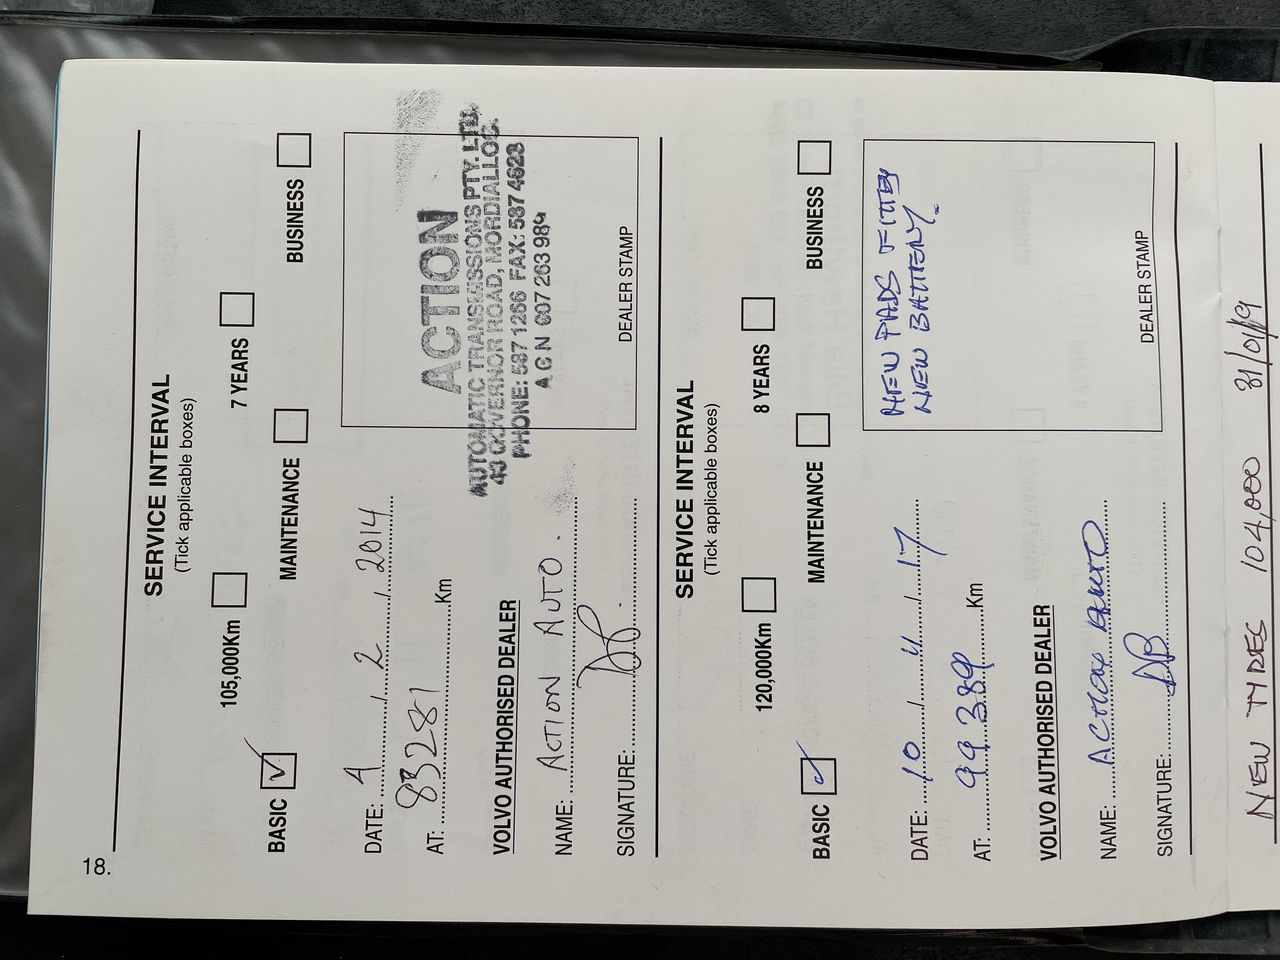 18.
SERVICE INTERVAL
(Tick applicable boxes)
105,000Km 7 YEARS
BASIC MAINTENANCE BUSINESS
DATE: 4 / 2 / 2014
AT: 83281 Km
VOLVO AUTHORISED DEALER
NAME: ACTION AUTO.
SIGNATURE:
ACTION
AUTOMATIC TRANSMISSIONS PTY. LTD.
43 GOVERNOR ROAD, MORDIALLOC.
PHONE: 587 1266 FAX: 587 4623
A C N 007 263 984
DEALER STAMP
SERVICE INTERVAL
(Tick applicable boxes)
120,000Km 8 YEARS
BASIC MAINTENANCE BUSINESS
DATE: 10 / 11 / 17
AT: 99 389 Km
VOLVO AUTHORISED DEALER
NAME: ACTION AUTO
SIGNATURE:
NEW PADS FITTED
NEW BATTERY.
DEALER STAMP
NEW TYRES 104,000 31/01/19